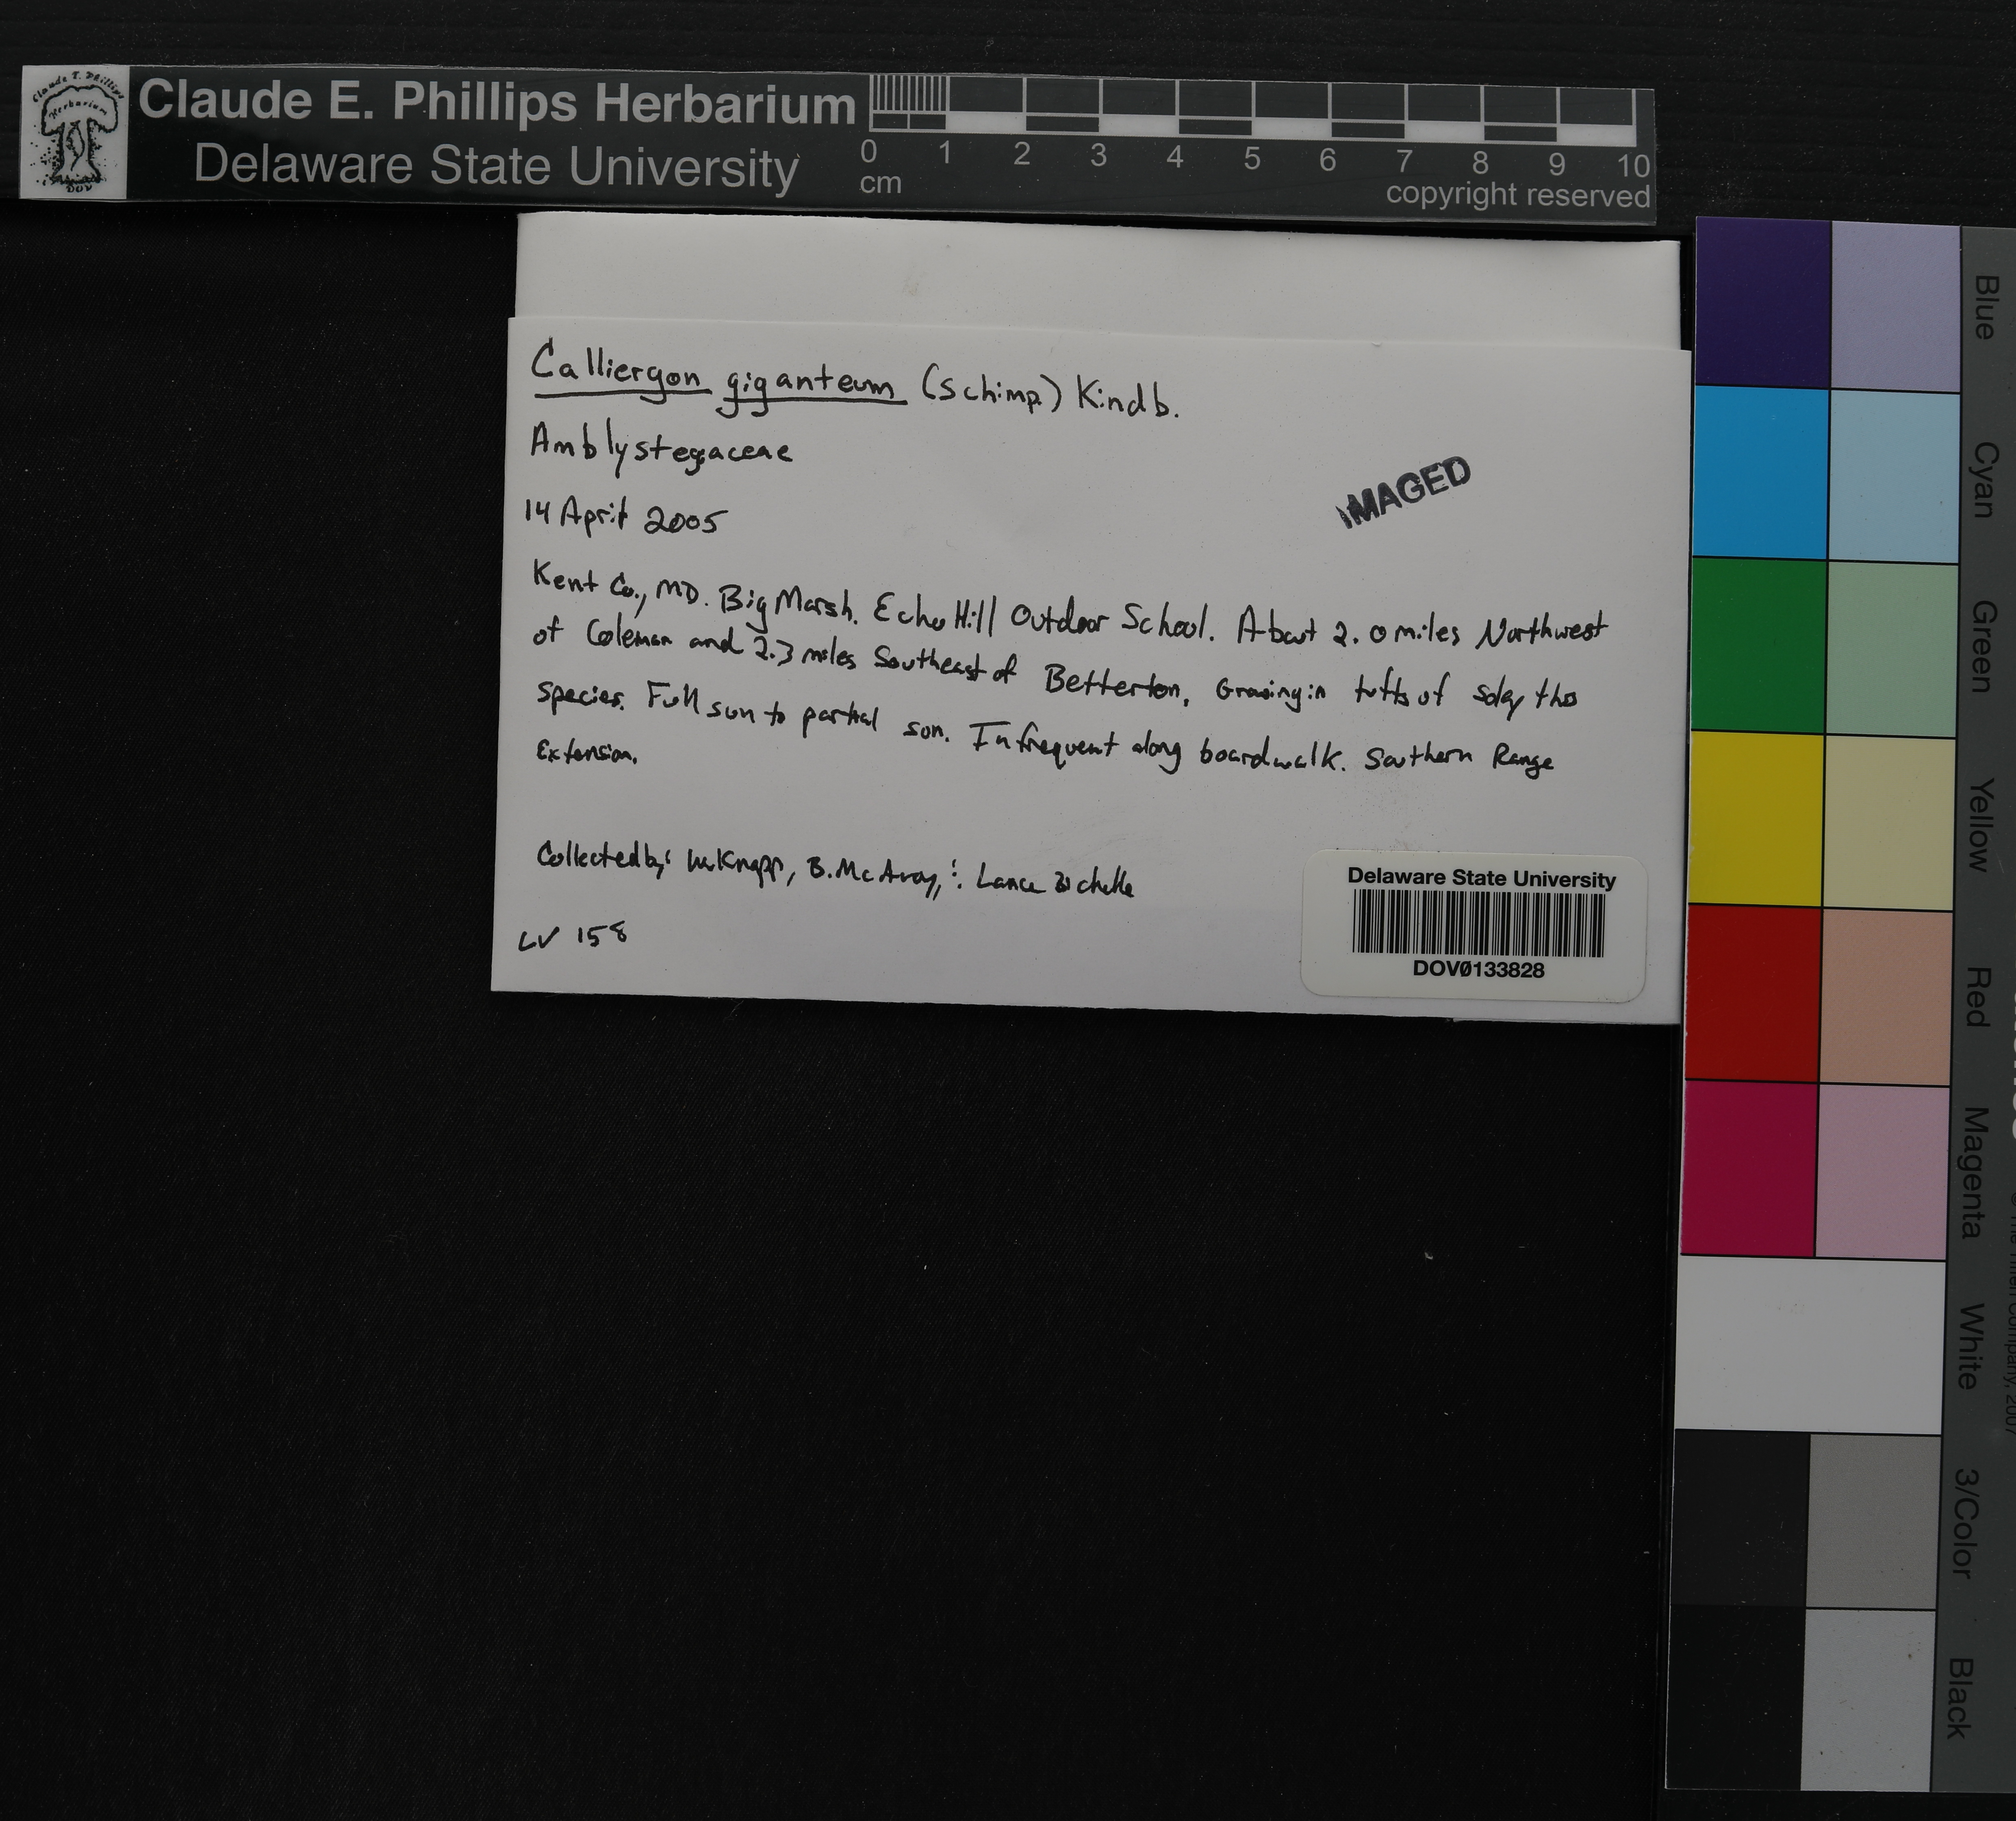 Claude E. Phillips Herbarium
Delaware State University
0 1 2 3 4 5 6 7 8 9 10
cm
copyright reserved
Calliergon giganteum (Schimp.) Kindb.
Amblystegaceae
IMAGED
14 April 2005
Kent Co., MD. Big Marsh. Echo Hill Outdoor School. About 2.0 miles Northwest
of Coleman and 2.3 miles Southeast of Betterton. Growing in tufts of
species. Full sun to partial sun. Infrequent along boardwalk. Southern Range
Extension.
Collected by: W. Knapp, B. McAvoy, Lance
LV 158
Delaware State University
DOV0133828
Blue
Cyan
Green
Yellow
Red
Magenta
White
3/Color
Black